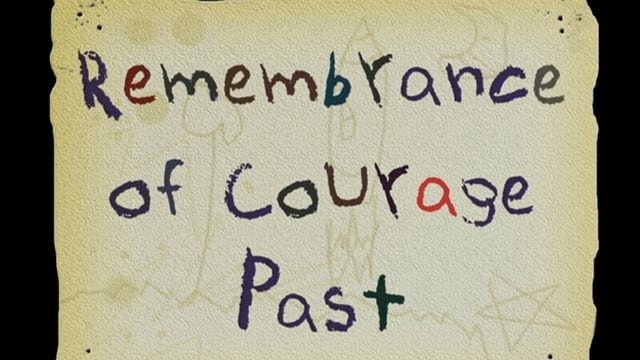 Remembrance
of Courage
Past